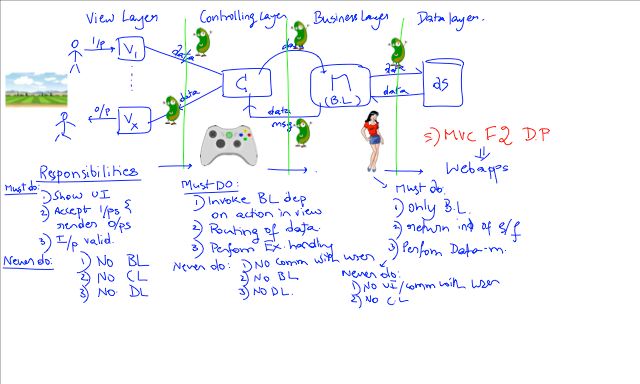 View Layer Controlling Layer Business Layer Data layer.
I/p
V1
data
data
data
data
C
M
(B.L)
DS
O/p
Vx
data
data
msg
5) MVC F2 D.P
Webapps
Responsibilities
Must do:
1) Show UI
2) Accept I/ps &
renders O/ps
3) I/p valid.
Never do:
1) NO BL
2) NO CL
3) NO DL
MUST DO:
1) Invoke BL dep
on action in view
2) Routing of data
3) Perform Ex. handling
Never do: 1) No comm with user
2) NO BL
3) NO DL.
Must do.
1) Only B.L.
2) return ind of S/f
3) Perform Data-m.
Never do:
1) No UI/comm with user
2) NO CL